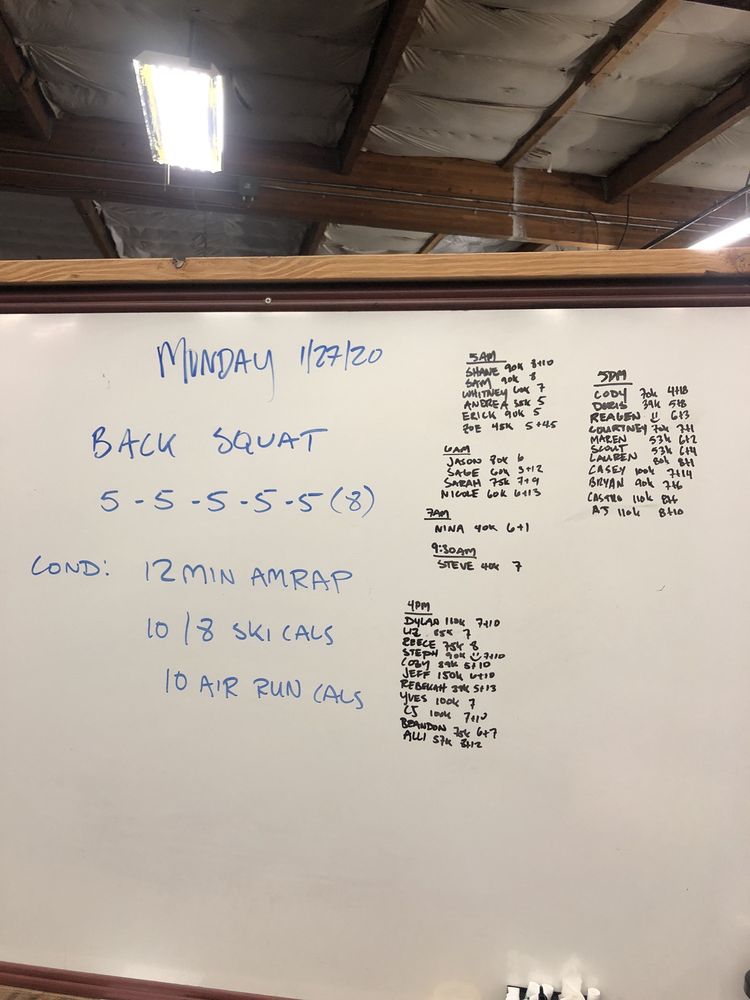 MONDAY 1/27/20
BACK SQUAT
5-5-5-5-5(8)
COND: 12 MIN AMRAP
10/8 SKI CALS
10 AIR RUN CALS
5AM
SHANE 90k 8+10
SAM 90k 8
WHITNEY 60k 7
ANDREA 35k 5
ERICK 90k 5
ZOE 45k 5+45
6AM
JASON 80k 6
SAGE 60k 3+12
SARAH 75k 7+9
NICOLE 60k 6+13
7AM
NINA 40k 6+1
9:30AM
STEVE 40k 7
4PM
DYLAN 110k 7+10
LIZ 85k 7
REECE 75k 8
STEPH 90k 7+10
COBY 39k 5+10
JEFF 150k 6+10
REBEKAH 39k 5+13
YVES 100k 7
CJ 100k 7+10
BRANDON 75k 6+7
ALLI 57k 8+12
5PM
CODY 70k 4+18
DORIS 39k 5+8
REAGEN 6+3
COURTNEY 70k 7+1
MAREN 53k 6+2
SCOUT 53k 6+4
LAUREN 80k 8+1
CASEY 100k 7+14
BRYAN 90k 7+6
CASTRO 110k 8+6
AJ 110k 8+10